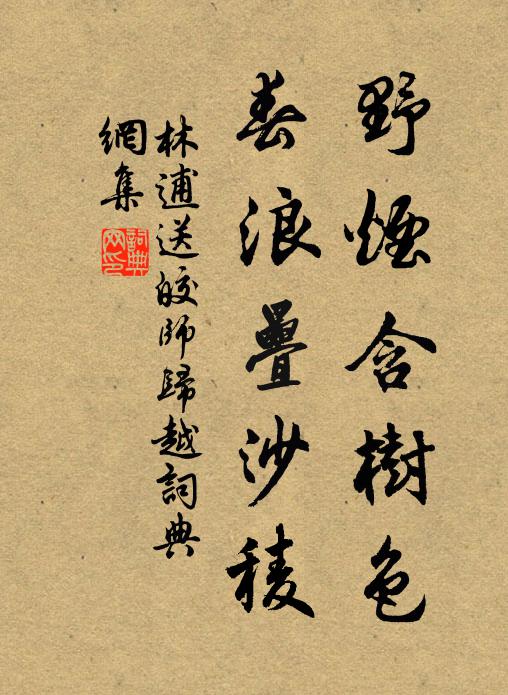 野煙含樹色
春浪疊沙稜
林逋送皎師歸越詞典
網集
詞典
网印